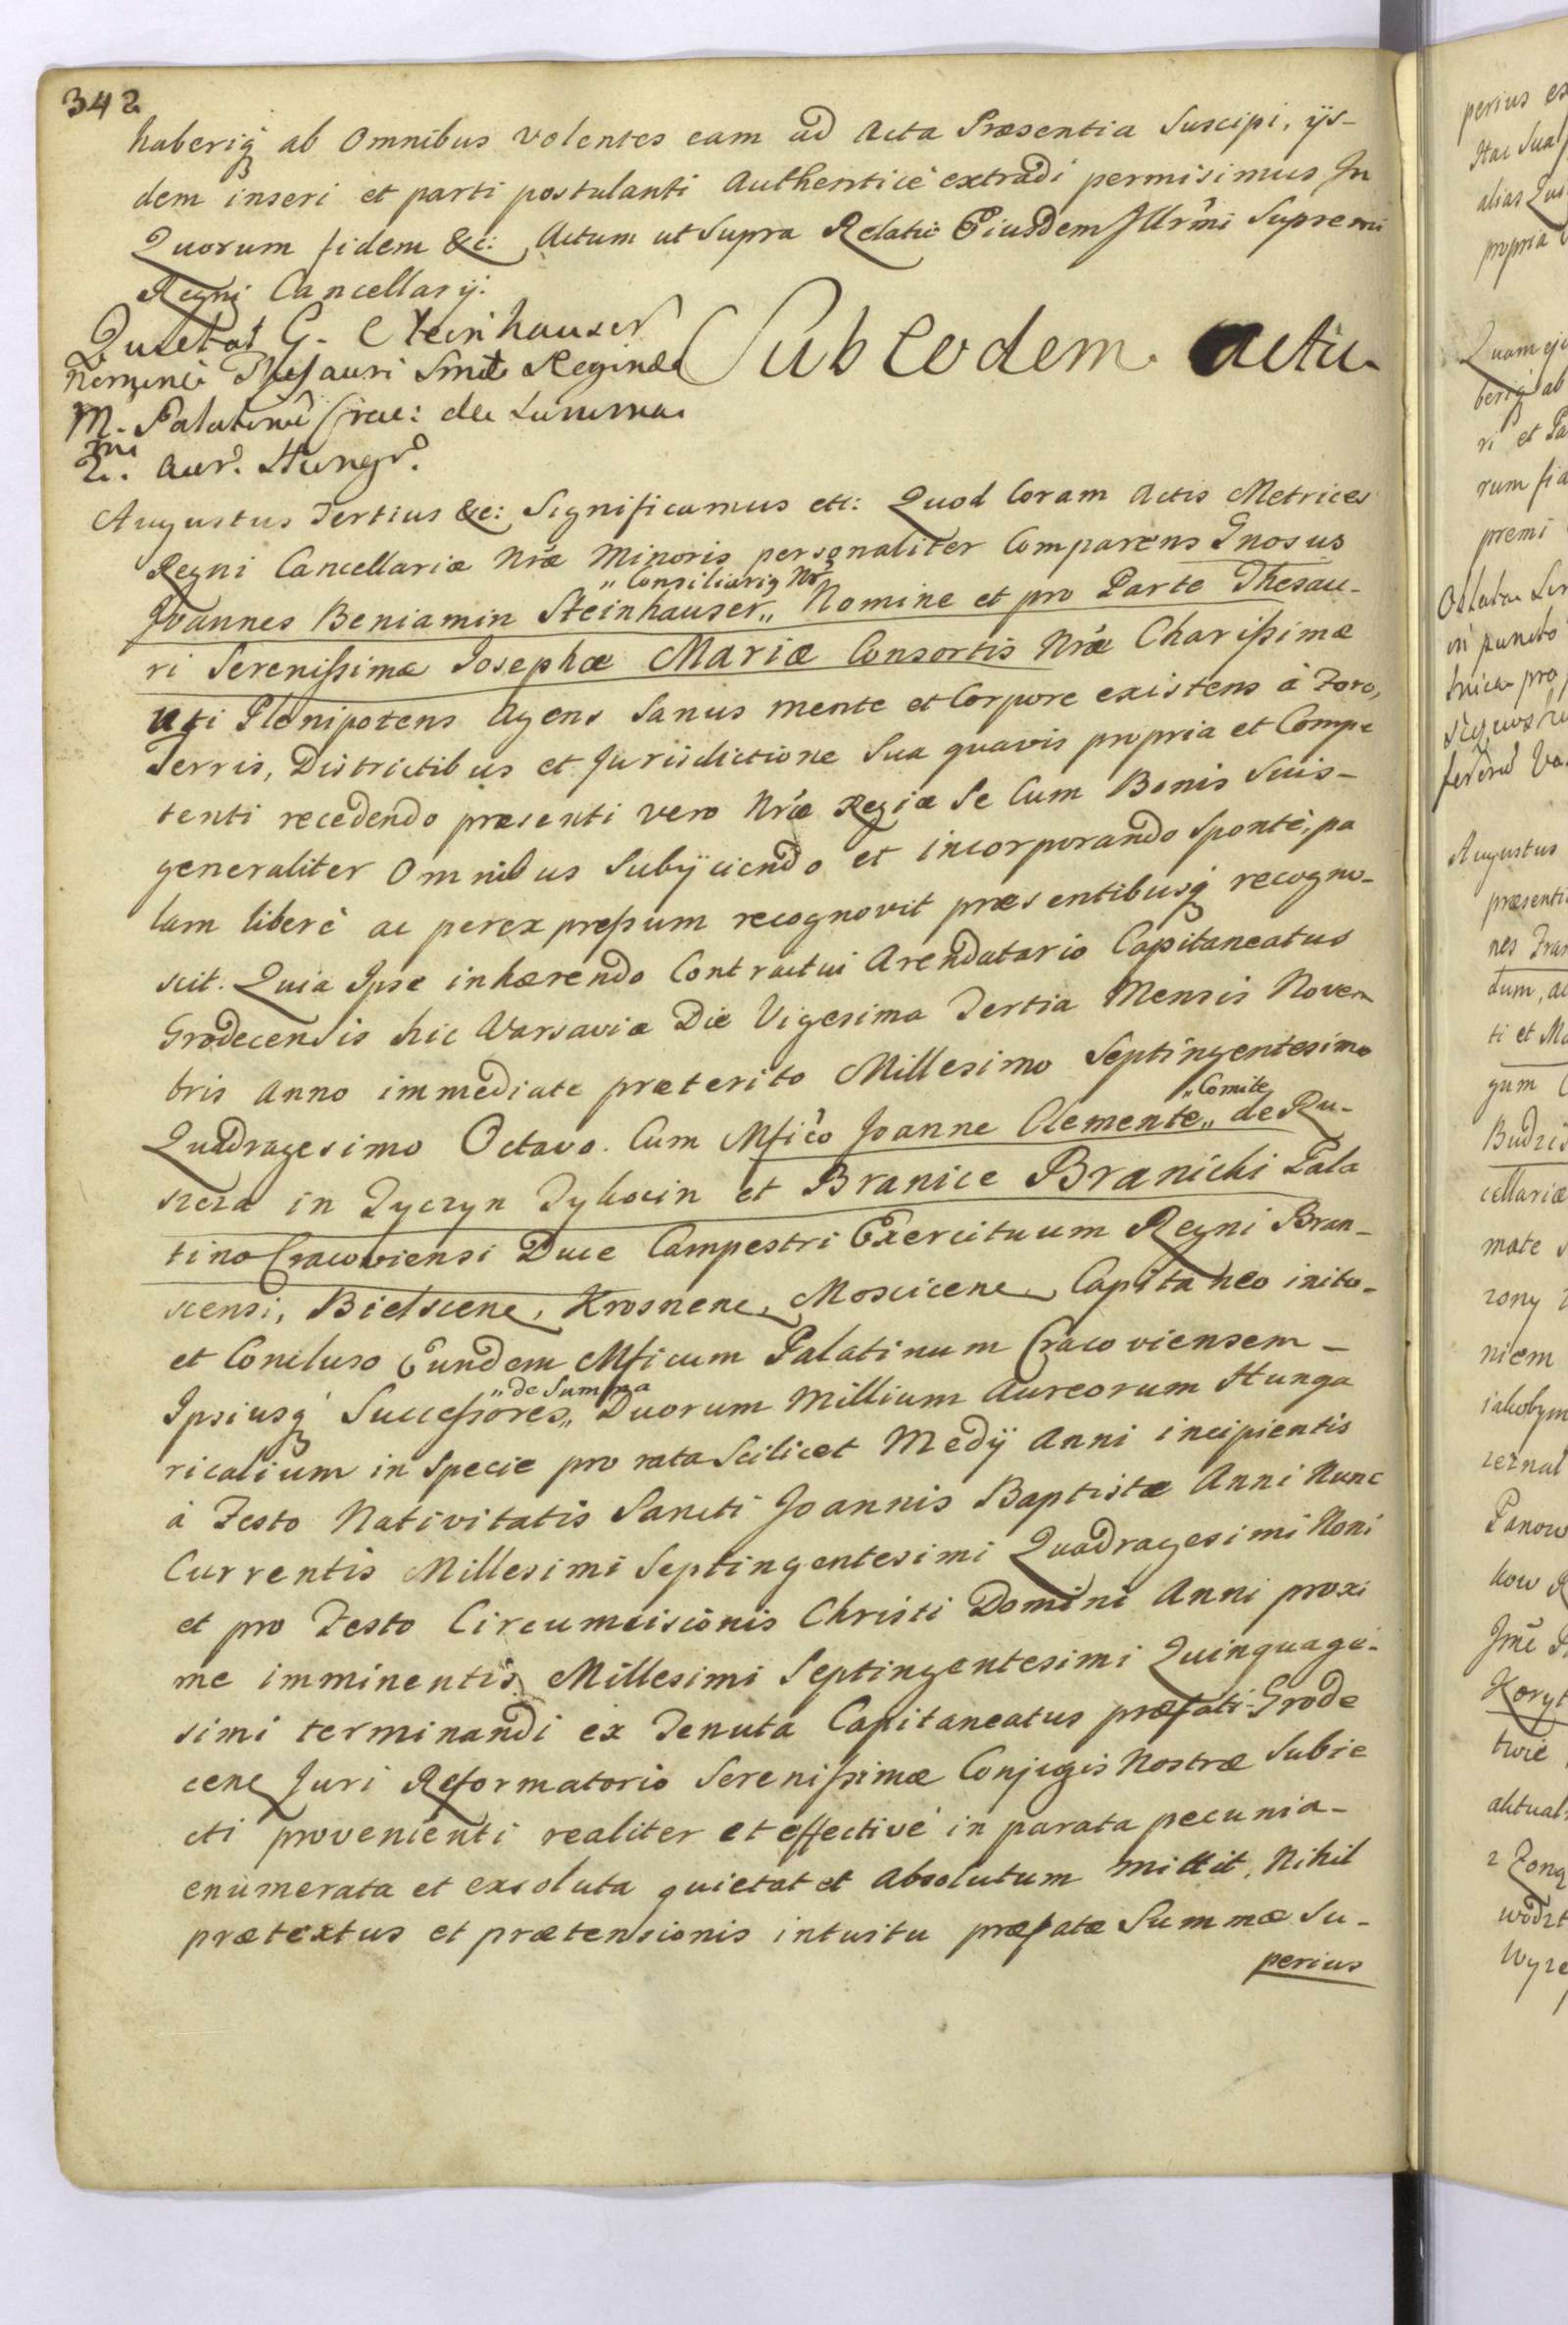 342
haberiq₃ ab Omnibus volentes eam ad Acta Præsentia Suscipi, ijs-
dem inseri et parti postulanti Authenticè extradi permisimus In
Quorum fidem &c: Actum ut Supra Relatio Eiusdem Illrmi Supremi
Regni Cancellarij.
Quietat G. Steinhauser
nomine Thesauri Smæ Reginæ
M. Palatinũ Crac: de Summa
2. mi Aur. Hungr.
Sub Eodem Actu
Augustus Tertius &c: Significamus etc: Quod Coram Actis Metrices
Regni Cancellariæ Nræ Minoris personaliter Comparens Gnosus
Joannes Beniamin Steinhauser „Consiliariq Nr„ Nomine et pro Parte Thesau-
ri Serenissimæ Josephæ Mariæ Consortis Nræ Charissimæ
uti Plenipotens Agens Sanus mente et Corpore existens à Foro,
Terris, Districtibus et Jurisdictione Sua quavis propria et Compe
tenti recedendo præsenti vero Nræ Regiæ Se Cum Bonis Suis-
generaliter Omnibus Subijciendo et incorporando Spontè, pa
lam liberè ac per expressum recognovit præsentibusq₃ recogno-
scit. Quia Ipse inhærendo Contractui Arendatario Capitaneatus
Grodecensis hic Varsaviæ Die Vigesima Tertia Mensis Novem
bris Anno immediate præterito Millesimo Septingentesimo
Quadragesimo Octavo. Cum Mfico Joanne Clemente „Comite„ de Ru-
szcza in Tyczyn Tykocin et Branice Branicki Pala
tino Cracoviensi Duce Campestri Exercituum Regni Bran-
scensi, Bielscene, Krosnene, Moscicene, Capitaneo inito-
et Concluso Eundem Mficum Palatinum Cracoviensem-
Ipsiusq₃ Successores „de Summa„ Duorum Millium Aureorum Hunga
ricalium in Specie pro rata Scilicet Medij Anni incipientis
à Festo Nativitatis Sancti Joannis Baptistæ Anni Nunc
Currentis Millesimi Septingentesimi Quadragesimi Noni
et pro Festo Circumcisionis Christi Domini Anni proxi
me imminentis Millesimi Septingentesimi Quinquage-
simi terminandi ex Tenuta Capitaneatus præfati Grode
cene Juri Reformatorio Serenissimæ Conjugis Nostræ Subie
cti provenienti realiter et effectivè in parata pecunia-
enumerata et exsoluta quietat et Absolutum mittit, Nihil
prætextus et prætensionis intuitu præfatæ Summæ Su-
perius
perius
Itac
alias
propria
Quam
beriq₃ ab
ri et Pa
rum
premi
Oblata
in puncto
pro
Augustus
præsenti
nes
dum,
ti et Ma
gum
cellariæ
mate
zony
niem
Panow
kow
aktual